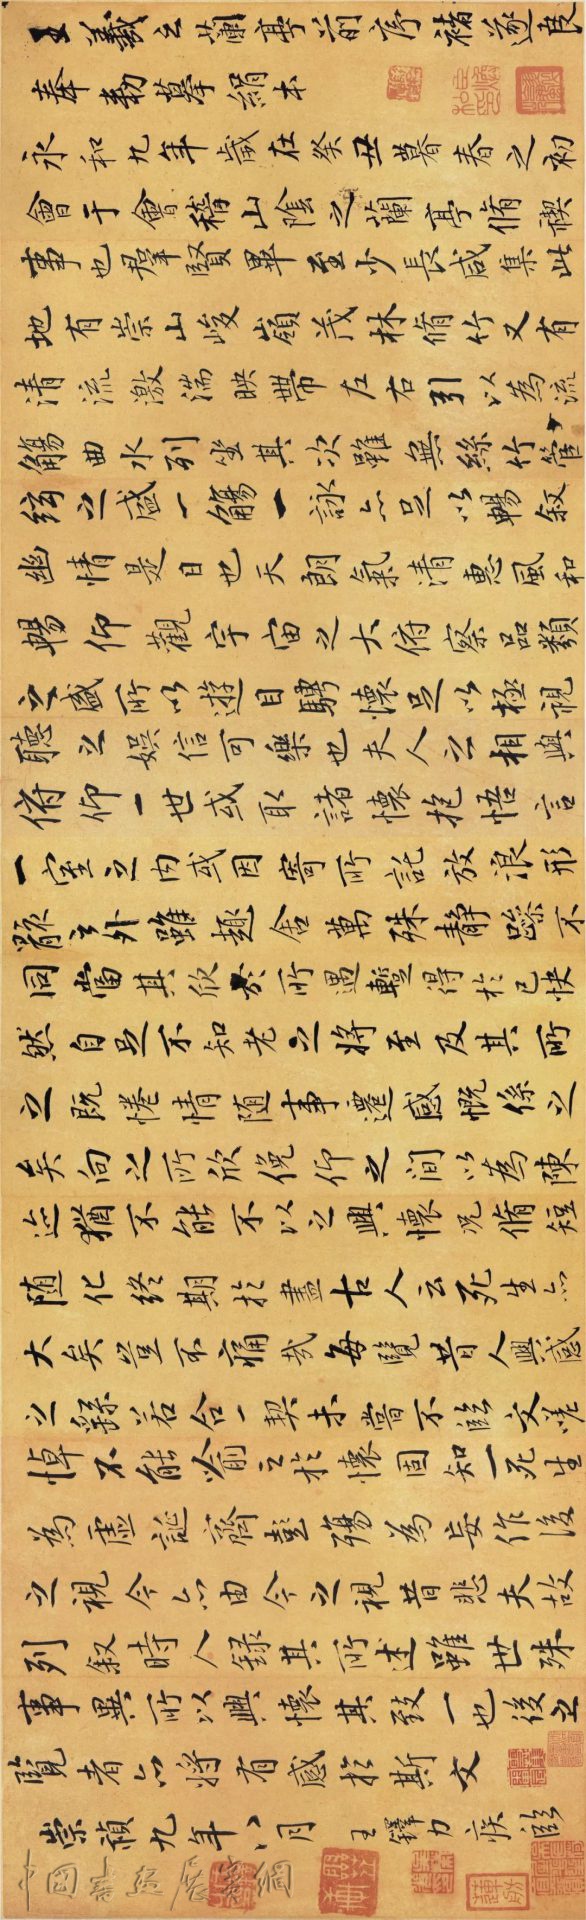 王羲之蘭亭前序褚遂良
奉勅摹絹本
永和九年歲在癸丑暮春之初
會于會稽山陰之蘭亭脩禊
事也羣賢畢至少長咸集此
地有崇山峻嶺茂林脩竹又有
清流激湍映帶左右引以為流
觴曲水列坐其次雖無絲竹管
絃之盛一觴一詠亦足以暢叙
幽情是日也天朗氣清惠風和
暢仰觀宇宙之大俯察品類
之盛所以遊目騁懷足以極視
聽之娛信可樂也夫人之相與
俯仰一世或取諸懷抱悟言
一室之内或因寄所託放浪形
骸之外雖趣舍萬殊靜躁不
同當其欣於所遇暫得於己快
然自足不知老之將至及其所
之既惓情随事遷感慨係之
矣向之所欣俛仰之間以為陳
迹猶不能不以之興懷況脩短
随化終期於盡古人云死生亦
大矣豈不痛哉每覽昔人興感
之繇若合一契未嘗不臨文嗟
悼不能喻之於懷固知一死生
為虛誕齊彭殤為妄作後
之視今亦由今之視昔悲夫故
列叙時人録其所述雖世殊
事異所以興懷其致一也後之
覽者亦將有感於斯文
崇禎九年八月王鐸力疾臨